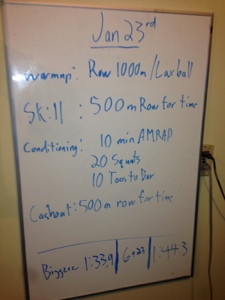 Jan 23rd
Warmup: Row 1000m/Lax ball
Skill: 500m Row for time
Conditioning: 10 min AMRAP
20 Squats
10 Toes to Bar
Cashout: 500m row for time
1:33.9 | 6+23 | 1:44.3